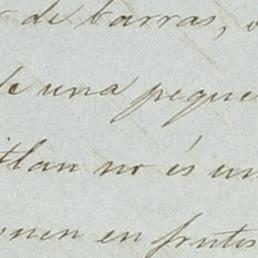 de barras,
de una peque
tlan no és un
onen en frutos